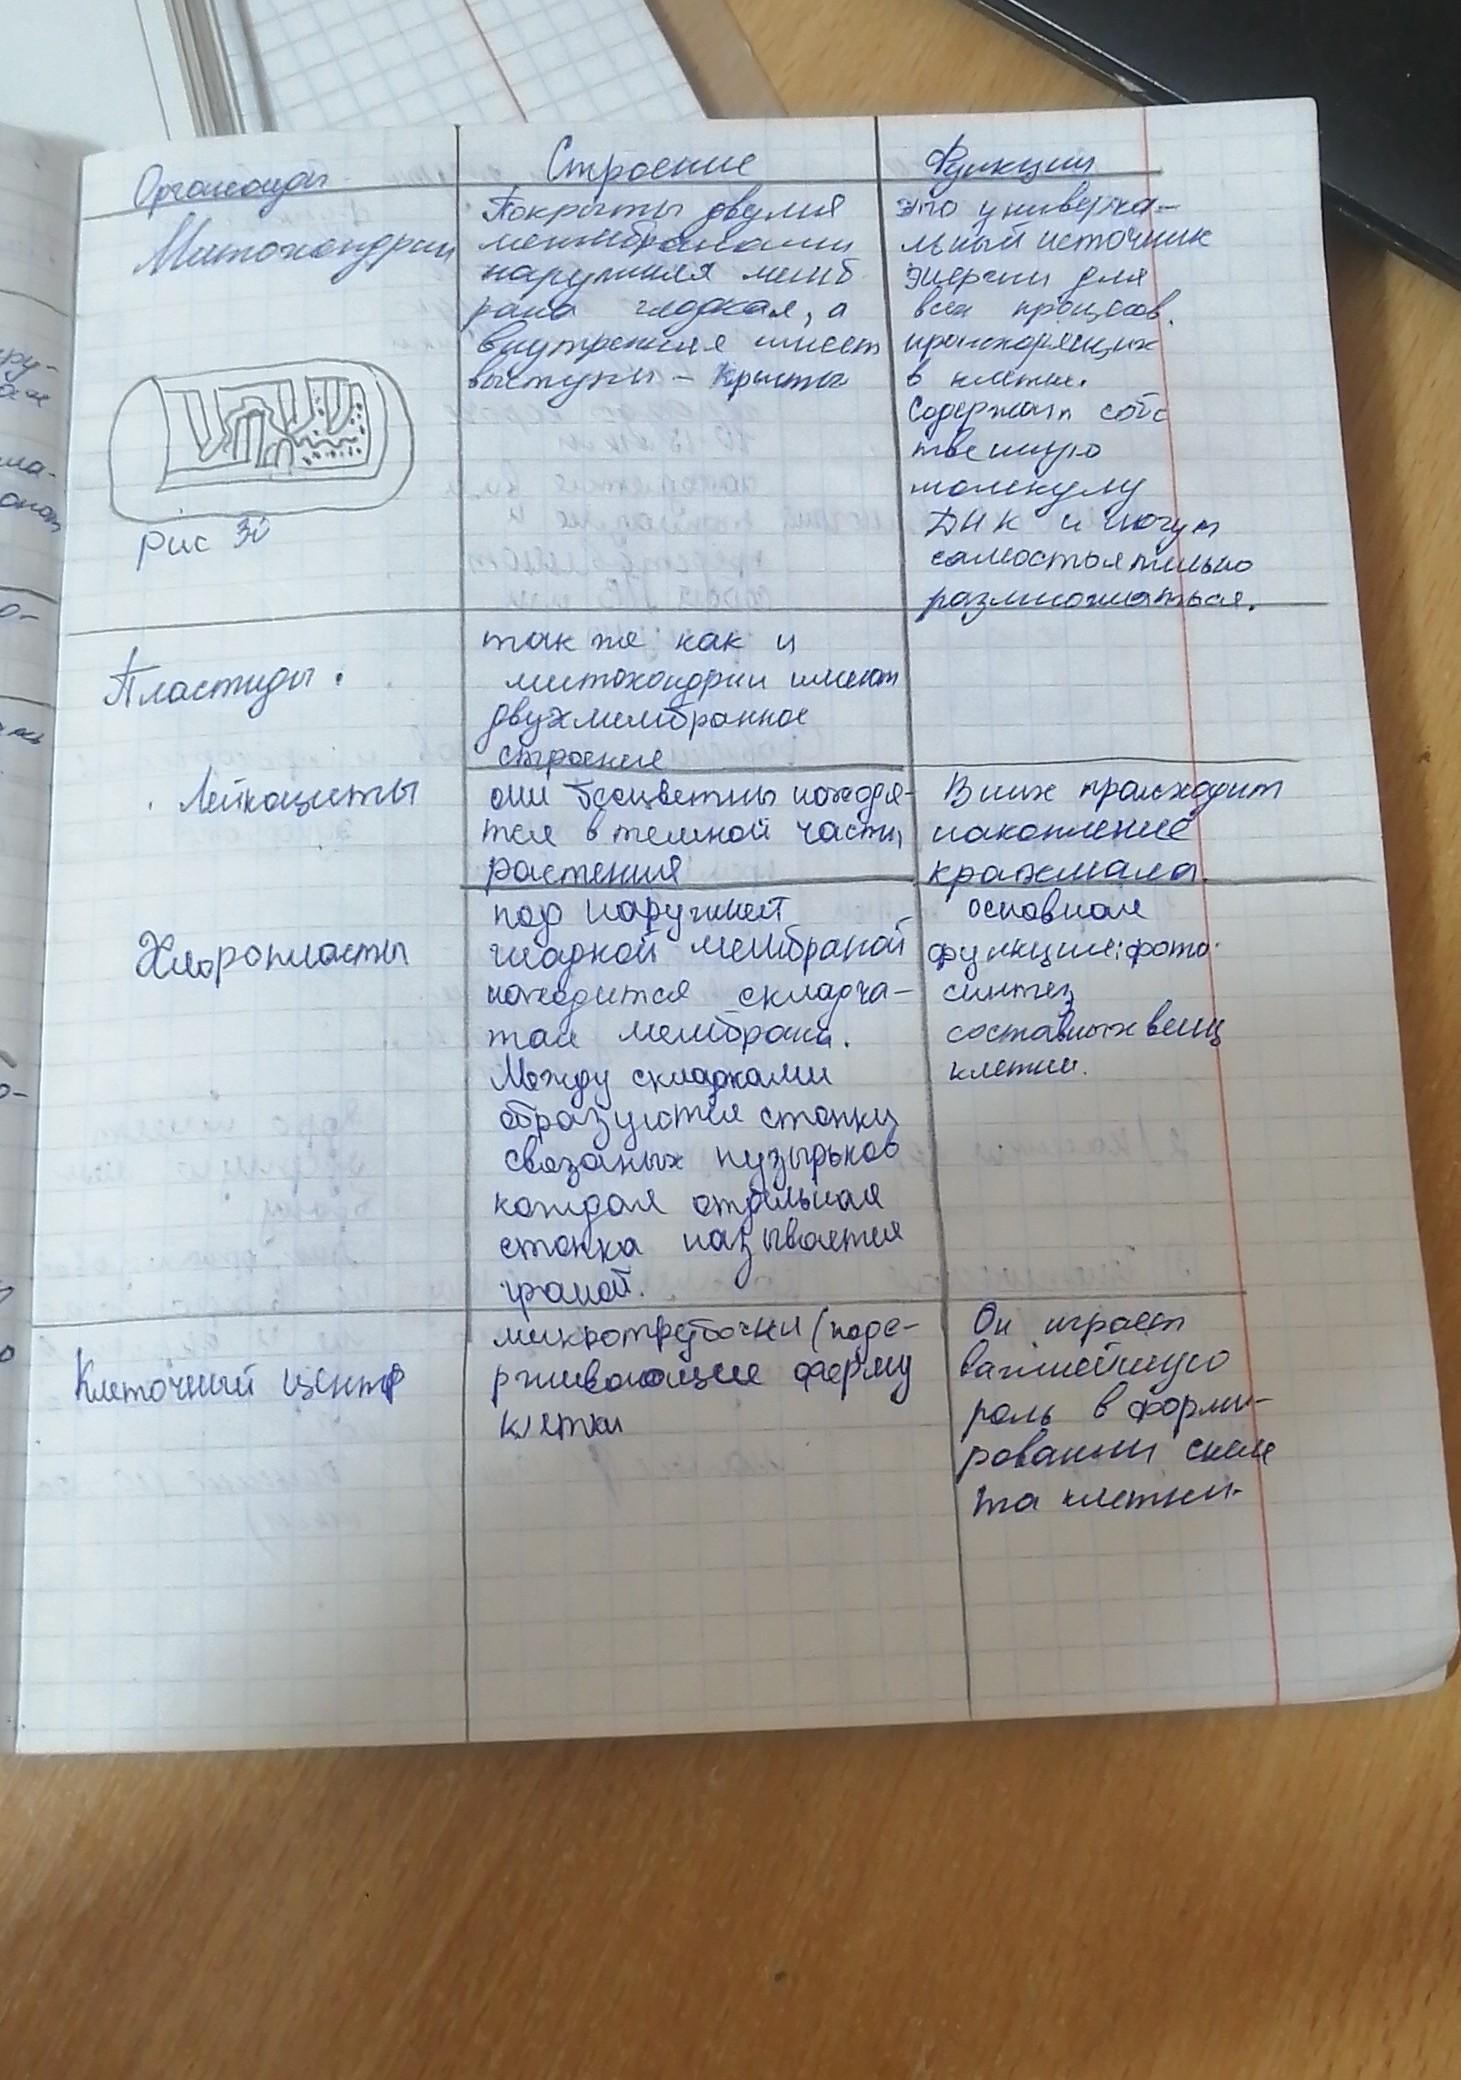 Органоиды
Строение
Функции
Митохондрии
Рис 30
Покрыты двумя
мембранами
наружняя мемб
рана гладкая, а
внутренняя имеет
выступы - Кристы
это универса-
льный источник
энергии для
всех процесов.
происходящих
в клетке.
Содержат собс
твенную
молекулу
ДНК и могут
самостоятельно
размножаться.
Пластиды.
так же как и
митохондрии имеют
двухмембранное
строение
Лейкоциты
они бесцветны находя-
тся в темной части
растения
В них происходит
накопление
крахмала.
Хлоропласты
под наружней
гладкой мембраной
находится складча-
тая мембрана.
Между складками
образуются стопки
связаных пузырьков
каждая отдельная
стопка называется
граной.
основная
функция: фото
синтез
составных вещ
клетки.
Клеточный центр
микротрубочки (подде-
рживающие форму
клетки
Он играет
важнейшую
роль в форми-
ровании скеле
та клетки.